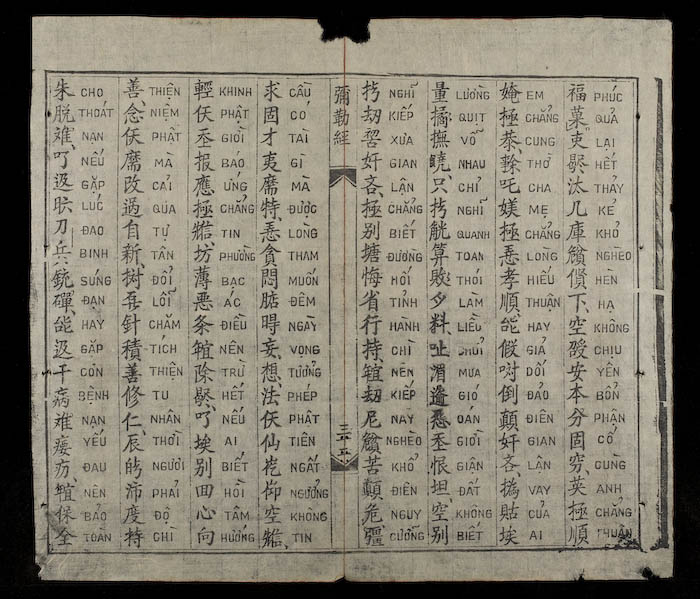 福菓吏 汰几庫 下、空 安本分固穷、英極順
PHÚC QUẢ LẠI HẾT THẢY KẺ KHỔ NGHÈO HÈN HẠ KHÔNG CHỊU YÊN BỔN PHẬN CỐ CÙNG ANH CHẲNG THUẬN
㛪極恭 吒媄極 孝順、能假 倒顛奸吝、 埃
EM CHẲNG CUNG THỜ CHA MẸ CHẲNG LÒNG HIẾU THUẬN HAY GIẢ DỐI ĐẢO ĐIÊN GIAN LẬN VAY CỦA AI
量 撫 只 算 料 恨坦空別
LƯỜNG QUỊT VỖ NHAU CHỈ NGHĨ QUANH TOAN THÓI LÀM LIỀU CHỬI MƯA GIÓ OÁN GIỜI GIẬN ĐẤT KHÔNG BIẾT
劫 奸吝、極別塘悔省行持、 劫尼 苦顛、危彊
NGHĨ KIẾP XƯA GIAN LẬN CHẲNG BIẾT ĐƯỜNG HỐI TỈNH HÀNH CHÌ NÊN KIẾP NÀY NGHÈO KHỔ ĐIÊN NGUY CƯỜNG
彌勒經
三十五
求固才夷 特、 貪悶 妄、想、法伕仙 仰空
CẦU CÓ TÀI GÌ MÀ ĐƯỢC LÒNG THAM MUỐN ĐÊM NGÀY VỌNG TƯỞNG PHÉP PHẬT TIÊN NGẤT NGƯỞNG KHÔNG TIN
輕伕 报應極 坊薄悪条 除 埃別回心向
KHINH PHẬT GIỜI BÁO ỨNG CHẲNG TIN PHƯỜNG BẠC ÁC ĐIỀU NÊN TRỪ HẾT NẾU AI BIẾT HỒI TÂM HƯỚNG
善、念伕 改過自新、 針積善修仁、辰 沛度持
THIỆN NIỆM PHẬT MÀ CẢI QUÁ TỰ TÂN ĐỔI LỖI CHĂM TÍCH THIỆN TU NHÂN THỜI NGƯỜI PHẢI ĐỘ CHÌ
朱脱难、 刀兵、銃彈、能 干病难 保全
CHO THOÁT NẠN NẾU GẶP LÚC ĐAO BINH SÚNG ĐẠN HAY GẶP CƠN BỆNH NẠN YẾU ĐAU NÊN BẢO TOÀN